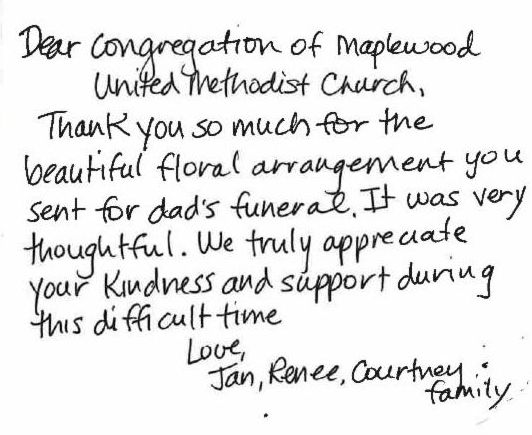 Dear Congregation of Maplewood
United Methodist Church,
Thank you so much for the
beautiful floral arrangement you
sent for dad's funeral. It was very
thoughtful. We truly appreciate
your kindness and support during
this difficult time
Love,
Jan, Renee, Courtney &
family